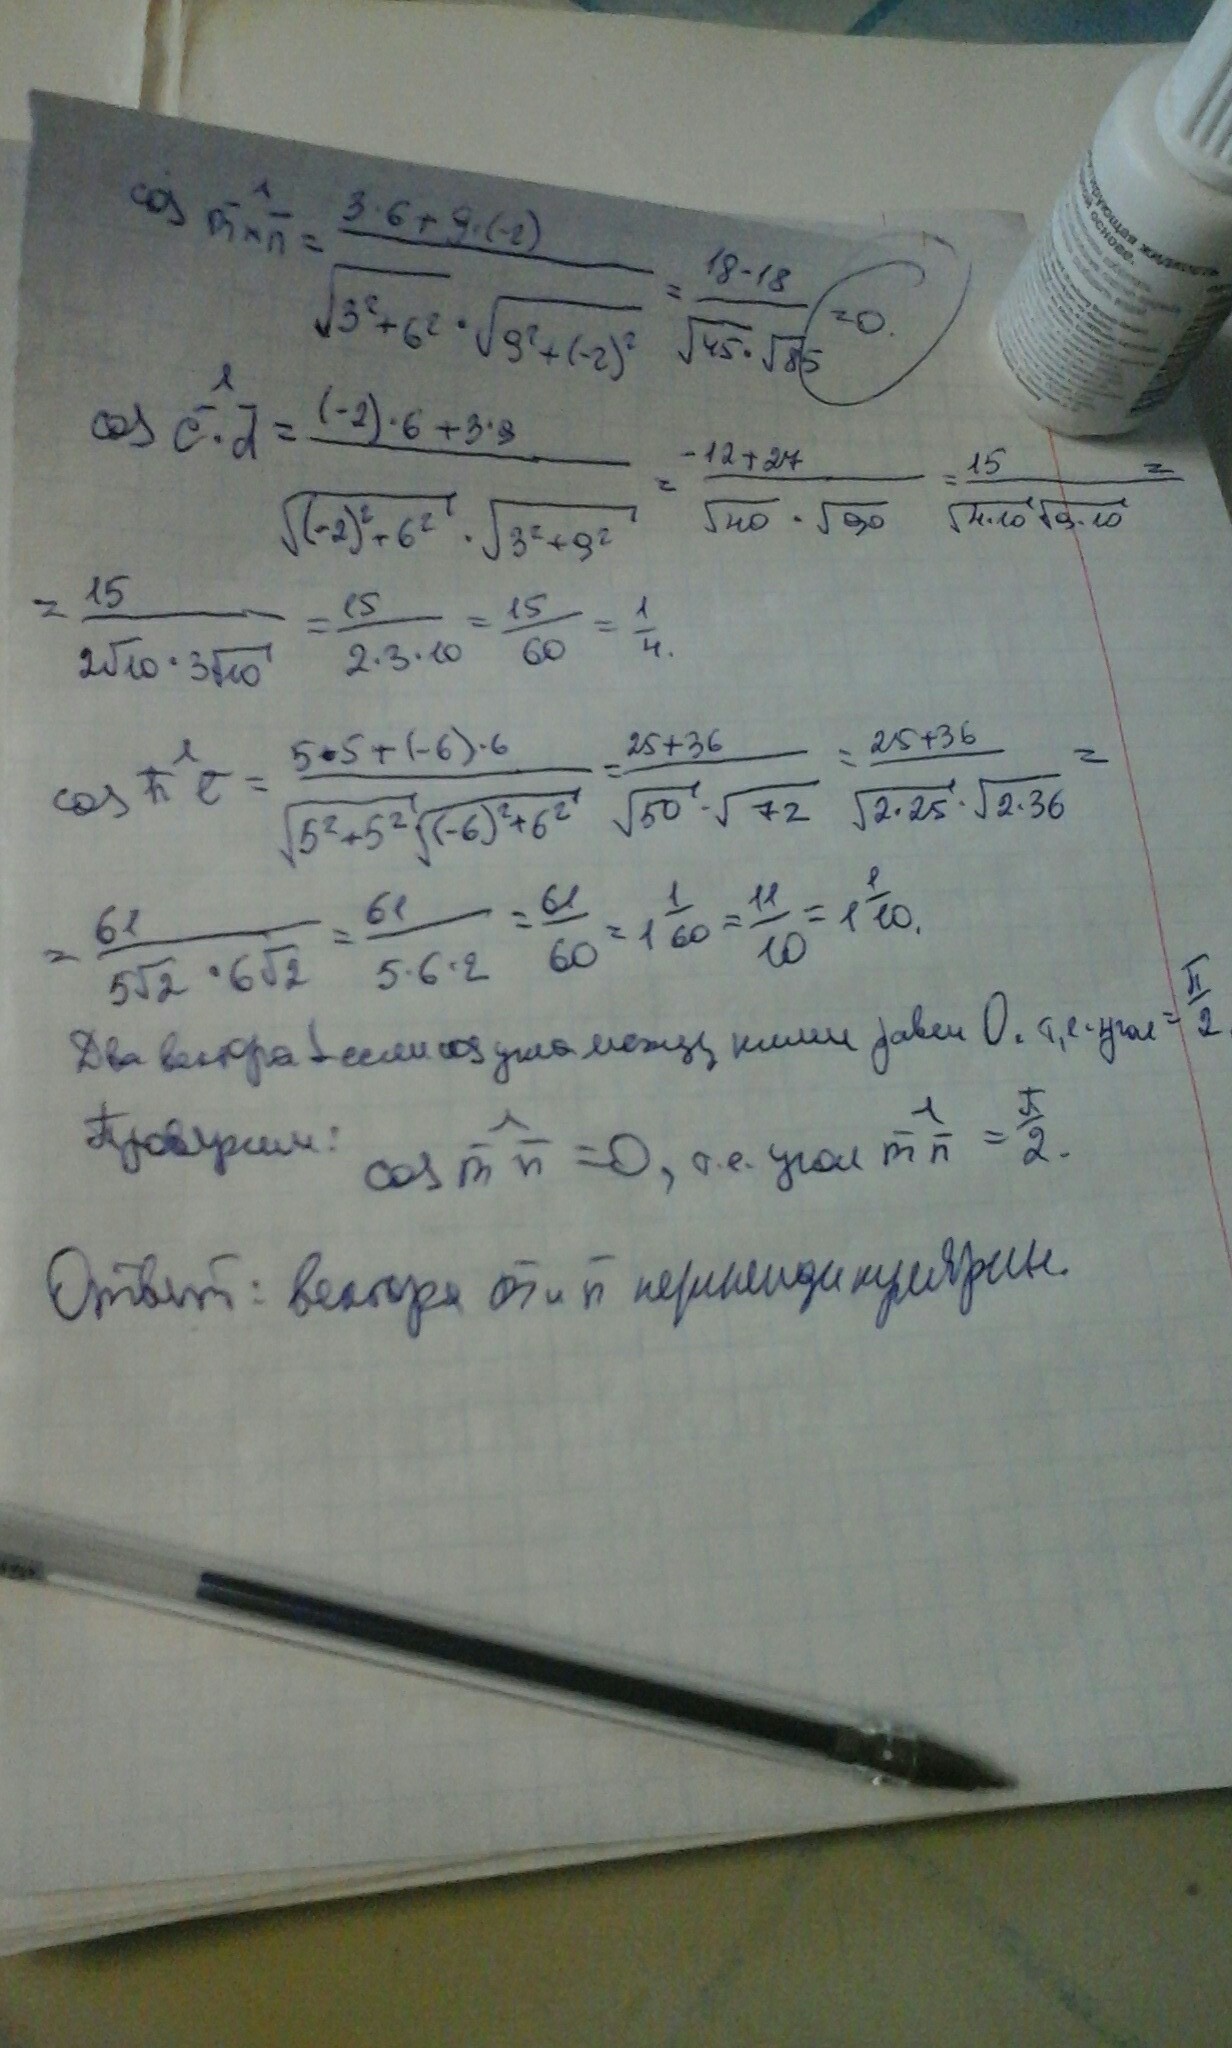 cos m̄^n̄ = (3·6+9·(-2))/(√(3²+6²)·√(9²+(-2)²)) = (18-18)/(√45·√85) = 0.
cos c̄^d̄ = ((-2)·6+3·9)/(√((-2)²+6²)·√(3²+9²)) = (-12+27)/(√40·√90) = 15/(√(4·10)√(9·10)) =
= 15/(2√10·3√10) = 15/(2·3·10) = 15/60 = 1/4.
cos k̄^ē = (5·5+(-6)·6)/(√(5²+5²)√((-6)²+6²)) = (25+36)/(√50·√72) = (25+36)/(√(2·25)·√(2·36)) =
= 61/(5√2·6√2) = 61/(5·6·2) = 61/60 = 1 1/60 = 11/10 = 1 1/10.
Два вектора ⊥ если cos угла между ними равен 0. т.е. угол = π/2.
Проверим: cos m̄^n̄ = 0, т.е. угол m̄^n̄ = π/2.
Ответ: вектора m̄ и n̄ перпендикулярны.
жидкость
основе.